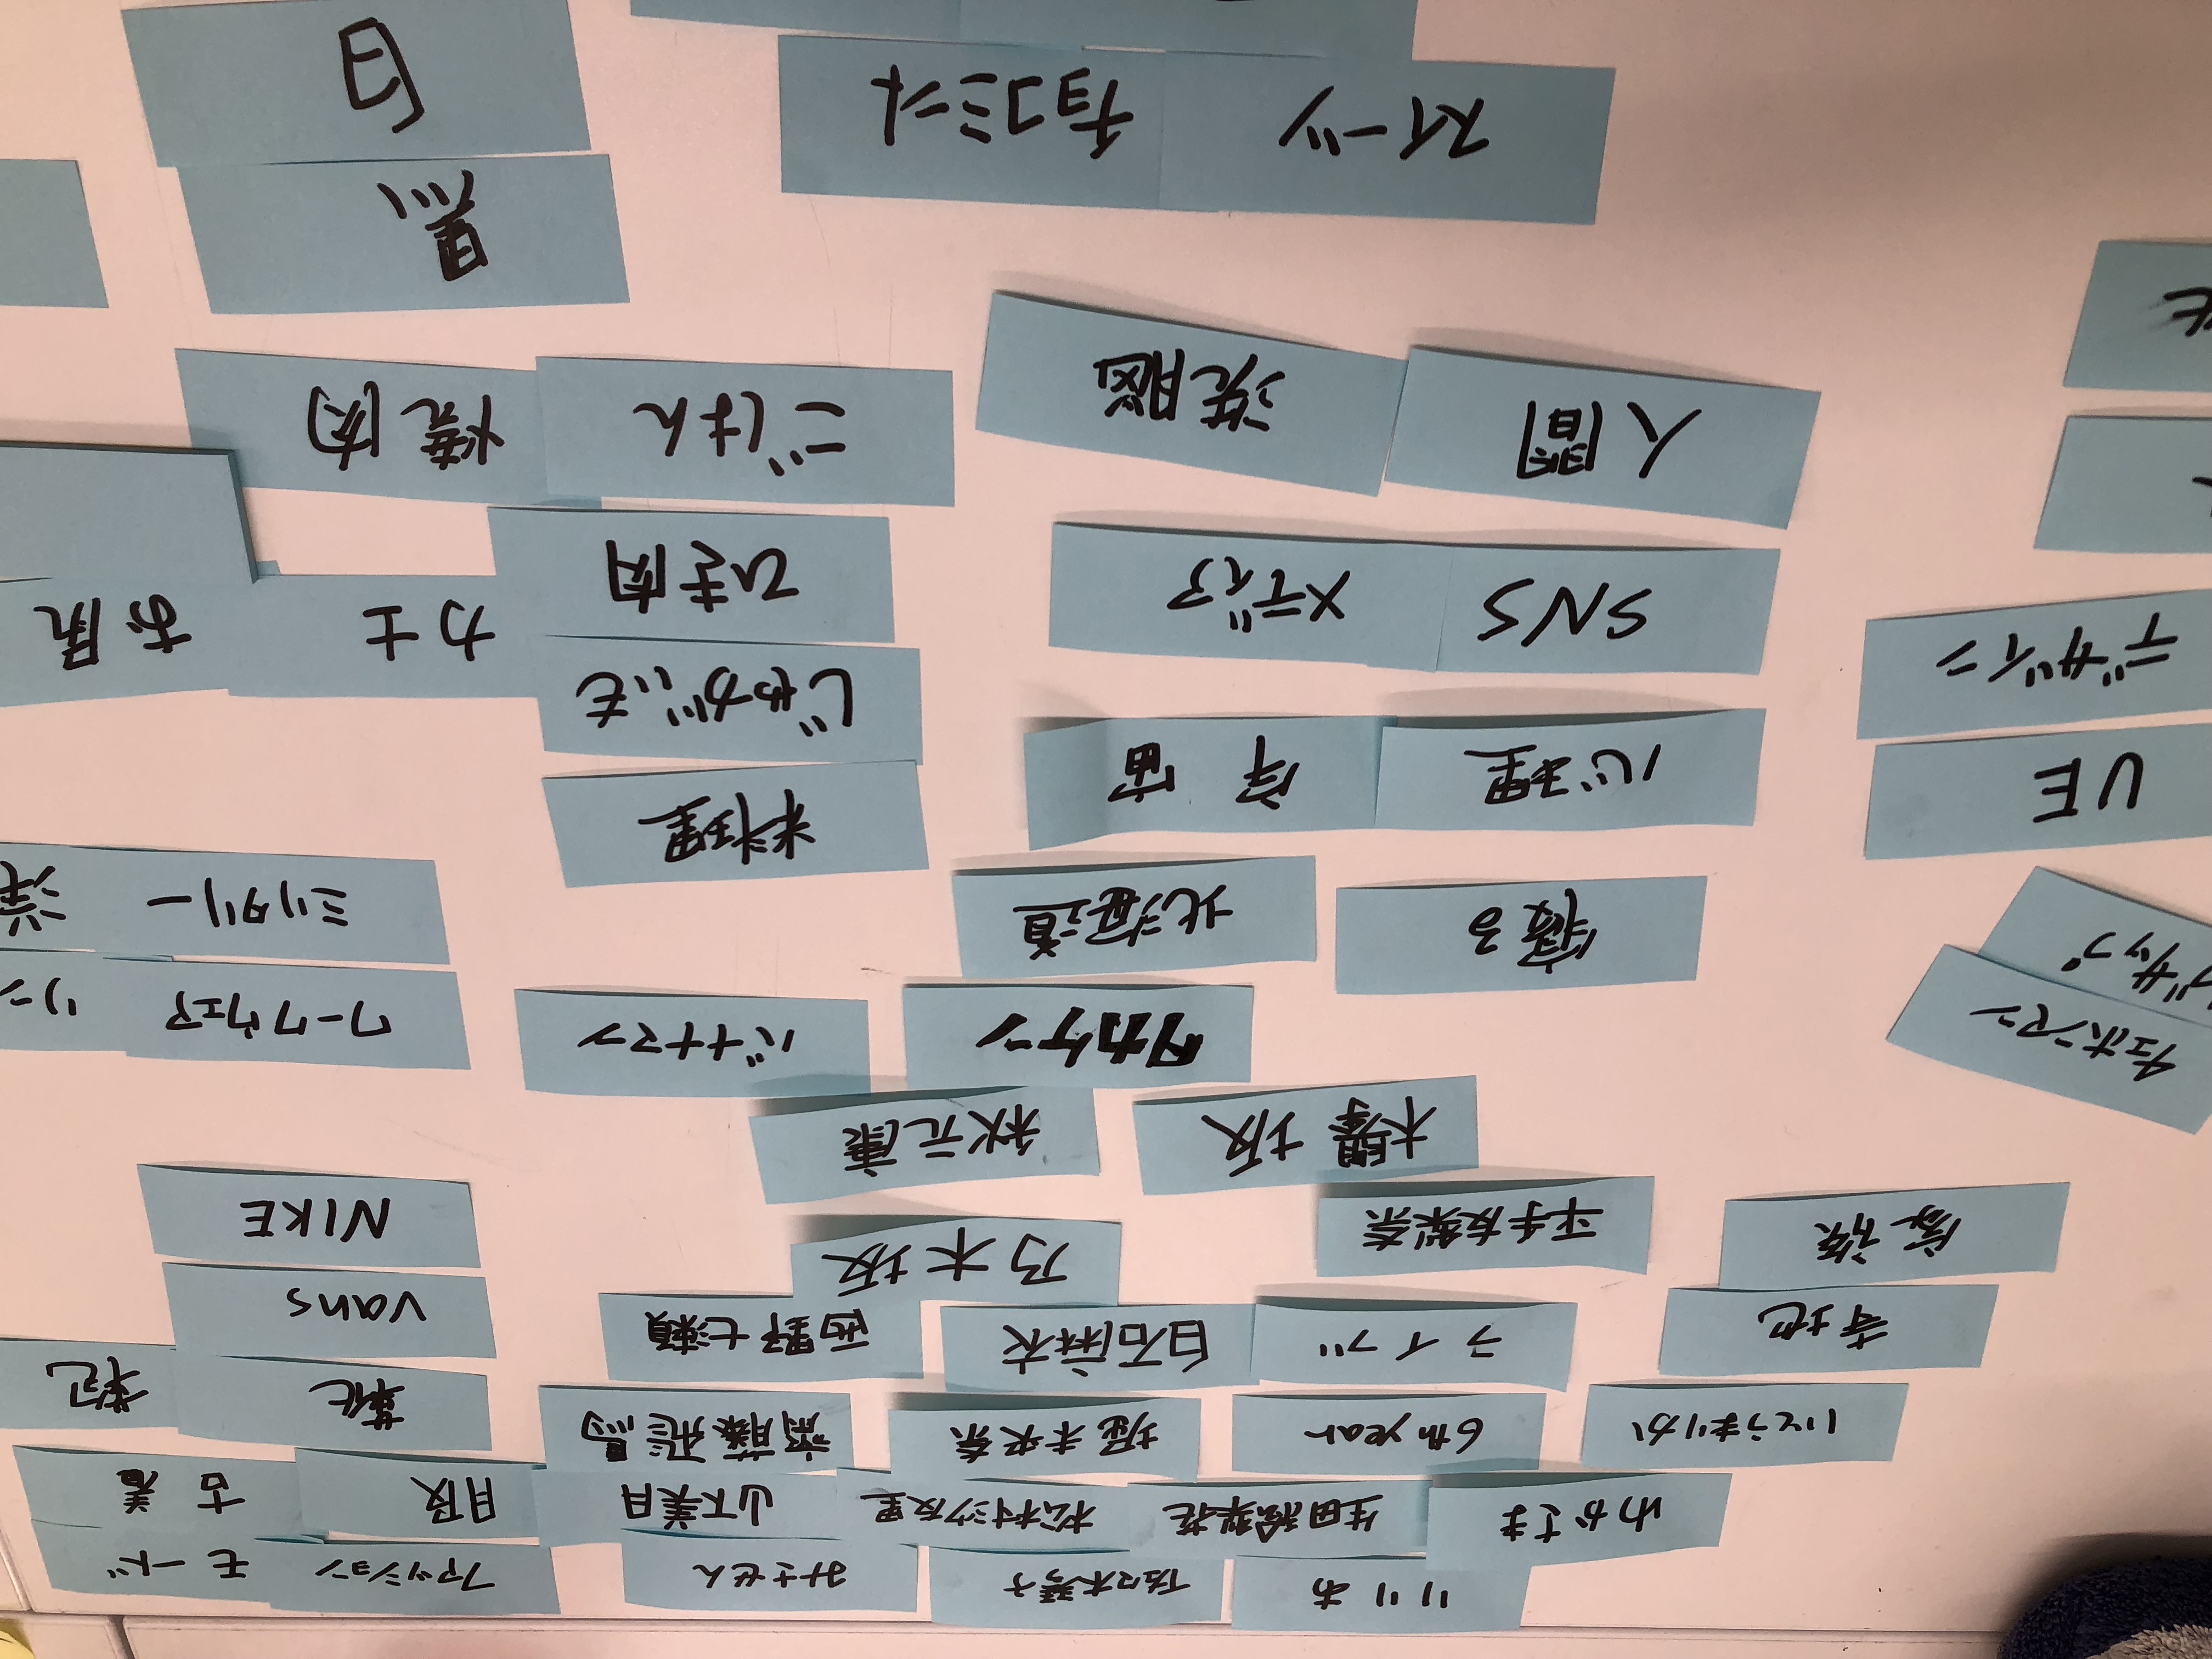 りりあ
佐々木琴子
みさせん
ファッション
モード
わかさま
生田絵梨花
松村沙友里
山下美月
服
古着
いとうまりか
6th year
堀未央奈
齋藤飛鳥
靴
鞄
寺地
ライブ
白石麻衣
西野七瀬
vans
家族
平手友梨奈
乃木坂
NIKE
欅坂
秋元康
チェホンマン
タカケン
バナナマン
ワークウェア
リン
ブサップ
寝る
北海道
ミリタリー
洋
料理
UE
心理
宇宙
じゃがいも
デザイン
SNS
メディア
ひき肉
力士
お尻
人間
洗脳
ごはん
焼肉
黒
スイーツ
チョコミント
白